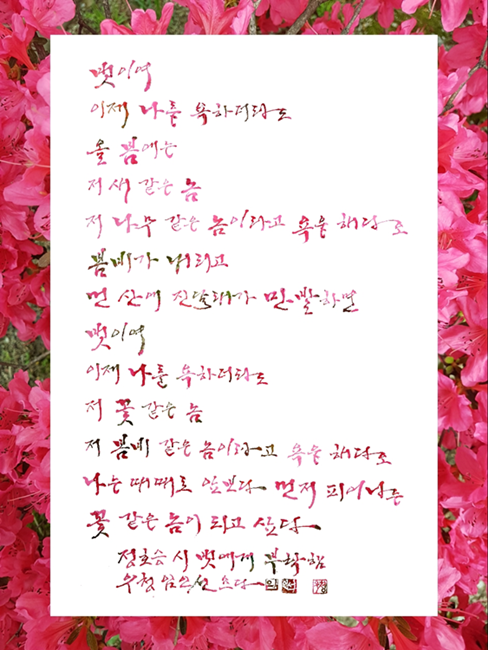 벗이여
이제 나를 욕하더라도
올 봄에는
저 새 같은 놈
저 나무 같은 놈이라고 욕을 해다오
봄비가 내리고
먼 산에 진달래가 만발하면
벗이여
이제 나를 욕하더라도
저 꽃 같은 놈
저 봄비 같은 놈이라고 욕을 해다오
나는 때때로 잎보다 먼저 피어나는
꽃 같은 놈이 되고 싶다
정호승 시 벗에게 부탁함
우청 쓰다